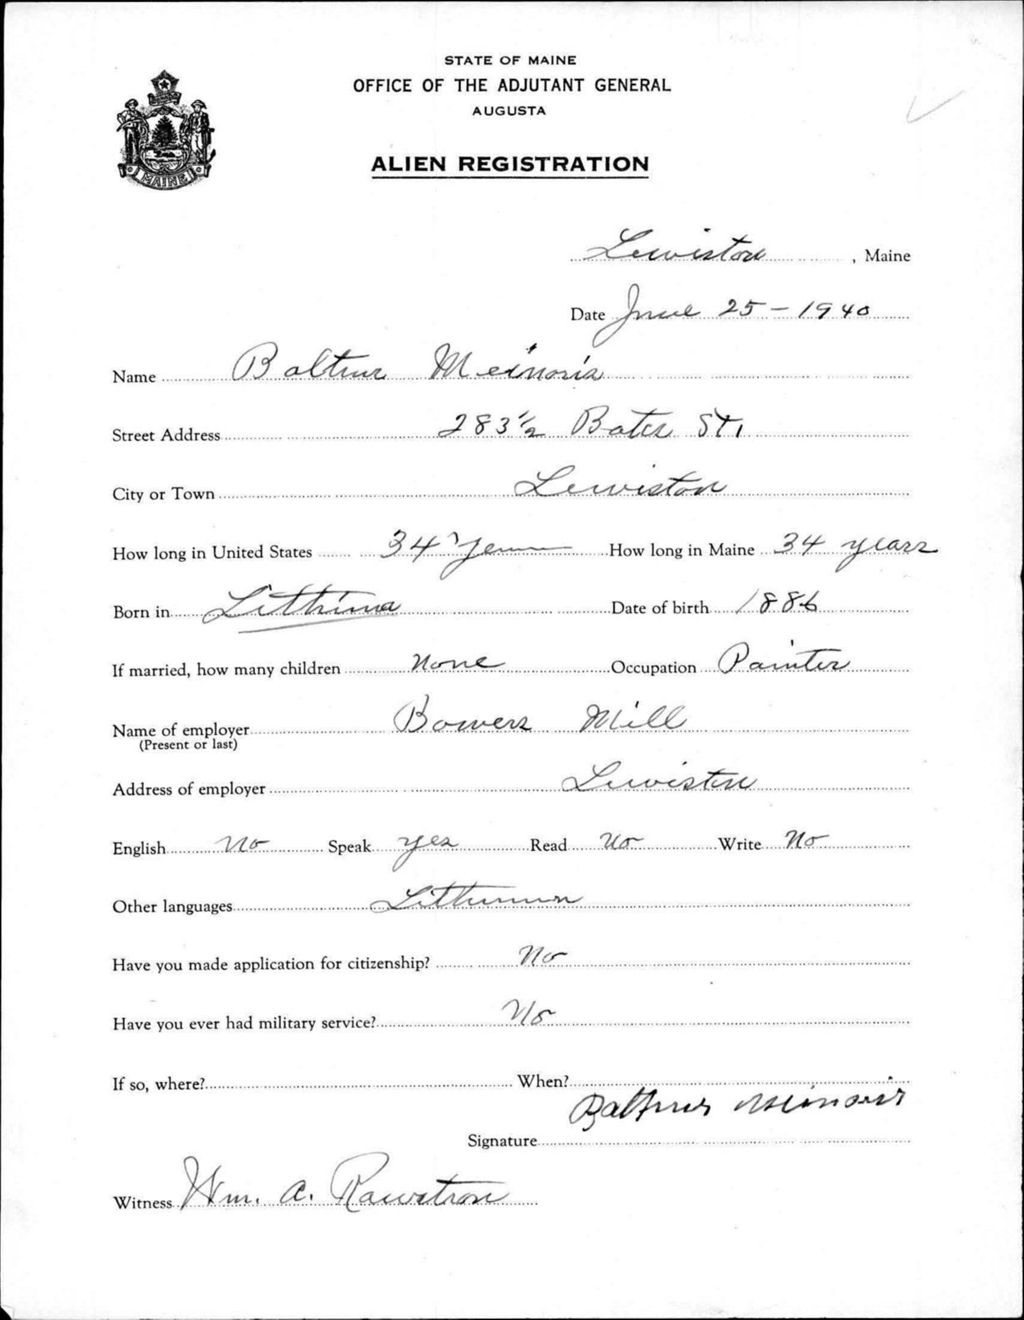 STATE OF MAINE
OFFICE OF THE ADJUTANT GENERAL
AUGUSTA
MAINE
ALIEN REGISTRATION
Lewiston, Maine
Date June 25 - 1940
Name Meinoris
Street Address 283 1/2 Bates St.
City or Town Lewiston
How long in United States 34 Years How long in Maine 34 years
Born in Date of birth 1886
If married, how many children None Occupation Painter
Name of employer Bowers Mill
(Present or last)
Address of employer Lewiston
English No Speak yes Read No Write No
Other languages
Have you made application for citizenship? No
Have you ever had military service? No
If so, where? When?
Signature
Witness Wm. A.